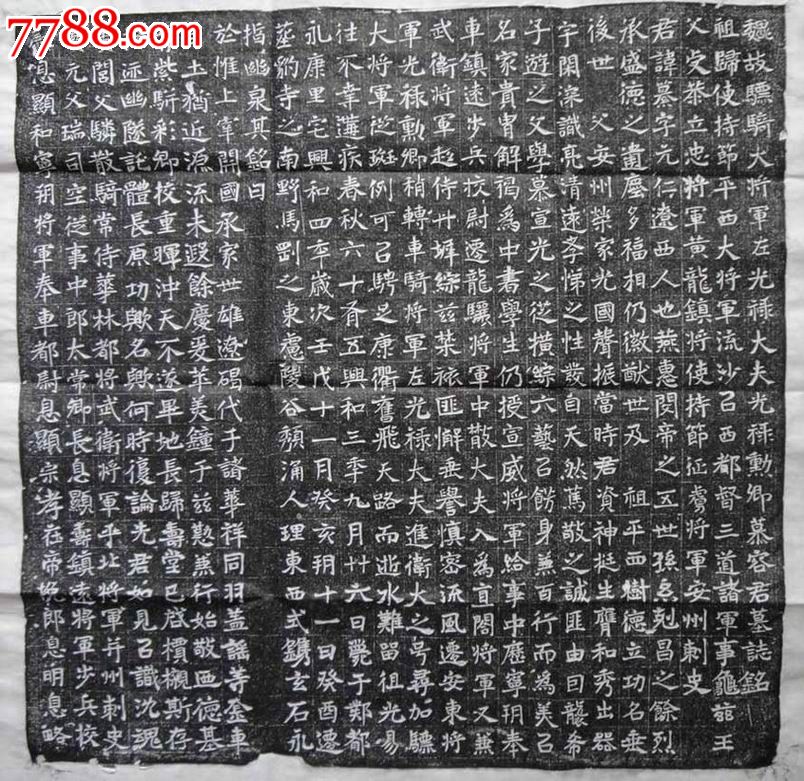 7788.com
魏故驃騎大將軍左光祿大夫光祿勳卿慕容君墓誌銘
祖歸使持節平西大將軍流沙㠯西都督三道諸軍事龜茲王
父定恭立忠將軍黃龍鎮將使持節征虜將軍安州刺史
君諱纂字元仁遼西人也燕惠閔帝之五世孫克昌之餘烈
承盛德之遺塵多福相仍徽猷世及 祖平西樹德立功名垂
後世 父安州榮家光國聲振當時君資神挺生膺和秀出器
宇閑深識亮清遠孝悌之性發自天然篤敬之誠匪由曰襲希
子遊之文學慕宣光之從橫綜六藝㠯飾身兼百行而為美㠯
名家貴胄解褐為中書學生仍授宣威將軍給事中歷寧朔奉
車鎮遠步兵校尉遷龍驤將軍中散大夫入為直閤將軍又兼
武衛將軍趍侍丹墀綜茲禁旅匪懈垂譽慎容流風遷安東將
軍光祿勳卿稍轉車騎將軍左光祿大夫進衛大之号尋加驃
大將軍從班例可㠯騁足康衢奮飛天路而逝水難留徂光易
往不幸遘疾春秋六十有五興和三年九月廿六日薨于鄴都
永康里宅興和四年歲次壬戌十一月癸亥朔十一日癸酉遷
葬豹寺之南野馬罡之東慮陵谷頹涌人理東西式鐫玄石永
指幽泉其銘曰
於惟上宰開國承家世雄遼碣代子諸華祥同羽蓋謠等金車
土猶近源流未遐餘慶爰萃美鍾于茲懃兼行始敬洒德基
紫駢彩卿校重暉沖天不遂畢地長歸壽堂已啟櫝櫬斯存
迹幽隧託體長原功歟名歟何時復論先君如見㠯識沈魂
閭父驎散騎常侍華林都將武衛將軍平北將軍并州刺史
元父瑞司空從事中郎太常卿長息顯壽鎮遠將軍步兵校
息顯和寧朔將軍奉車都尉息顯宗孝莊帝挽郎息明息略